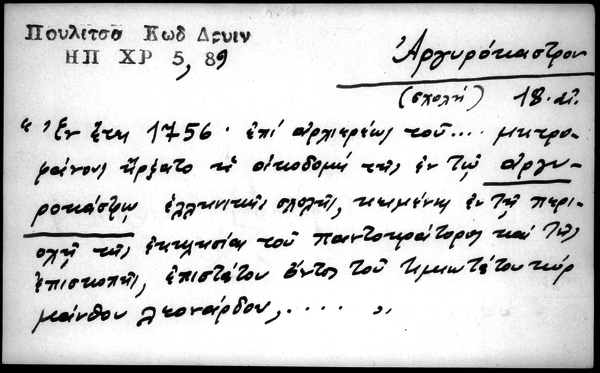 Πουλιτσα Κωδ Δρυιν
ΗΠ ΧΡ 5, 89
Ἀργυρόκαστρον
(σχολή) 18. αἰ.
“ Ἐν ἔτει 1756. ἐπί ἀρχιερέως τοῦ.... μητρο-
φάνους ἤρξατο ἡ οἰκοδομή τῆς ἐν τῷ ἀργυ-
ροκάστρῳ ἑλληνικῆς σχολῆς, κειμένης ἐν τῇ περι-
οχῇ τῆς ἐκκλησίας τοῦ παντοκράτορος καί τῆς
ἐπισκοπῆς, ἐπιστάτου ὄντος τοῦ τιμιωτάτου κύρ
μάνθου λεονάρδου, .... „